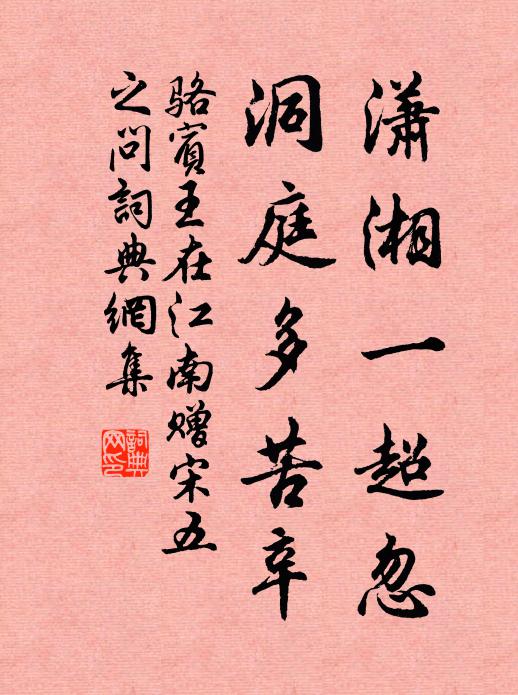 瀟湘一超忽
洞庭多苦辛
駱賓王在江南赠宋五
之问詞典網集
詞典
网印